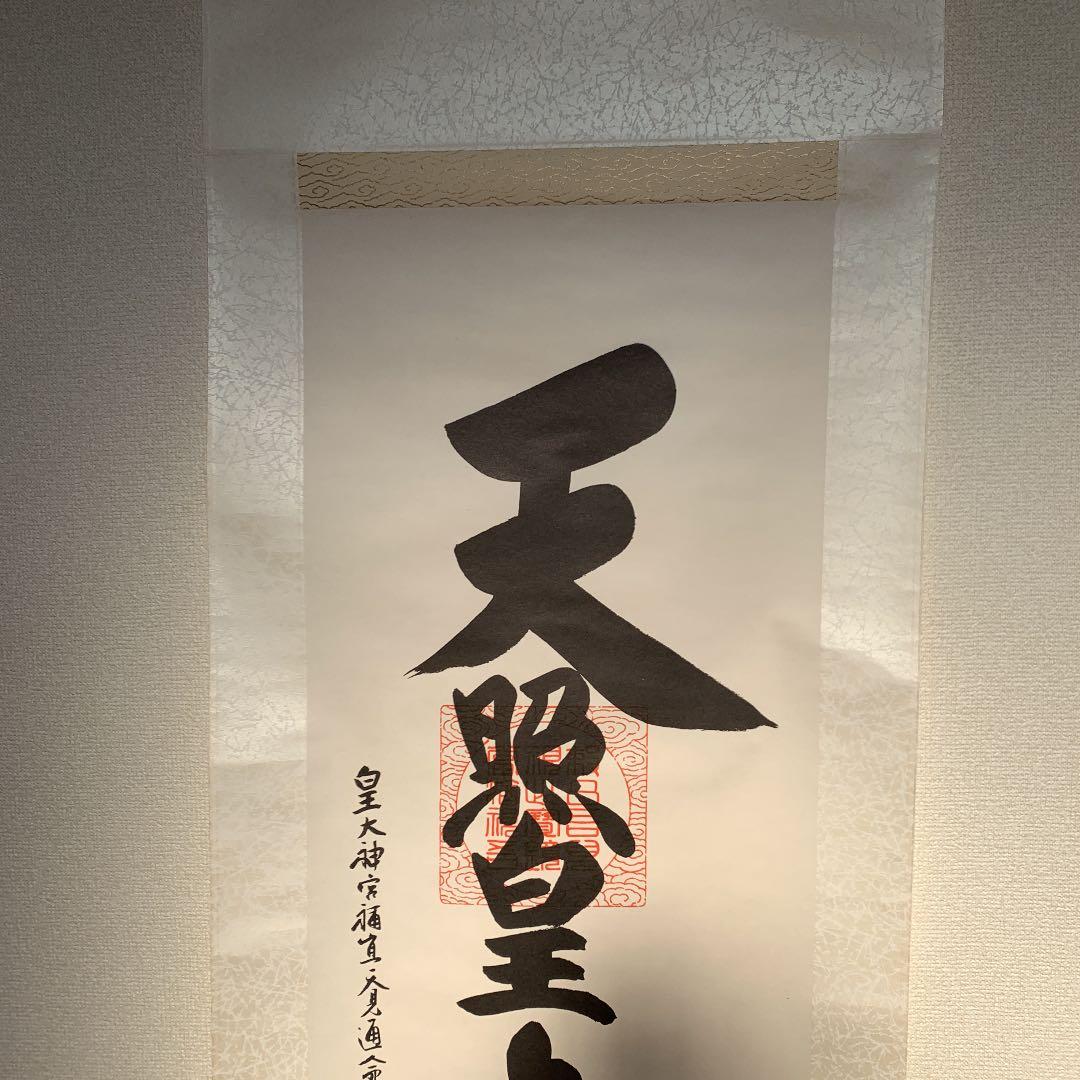 天照皇
皇大神宮禰宜天見通命